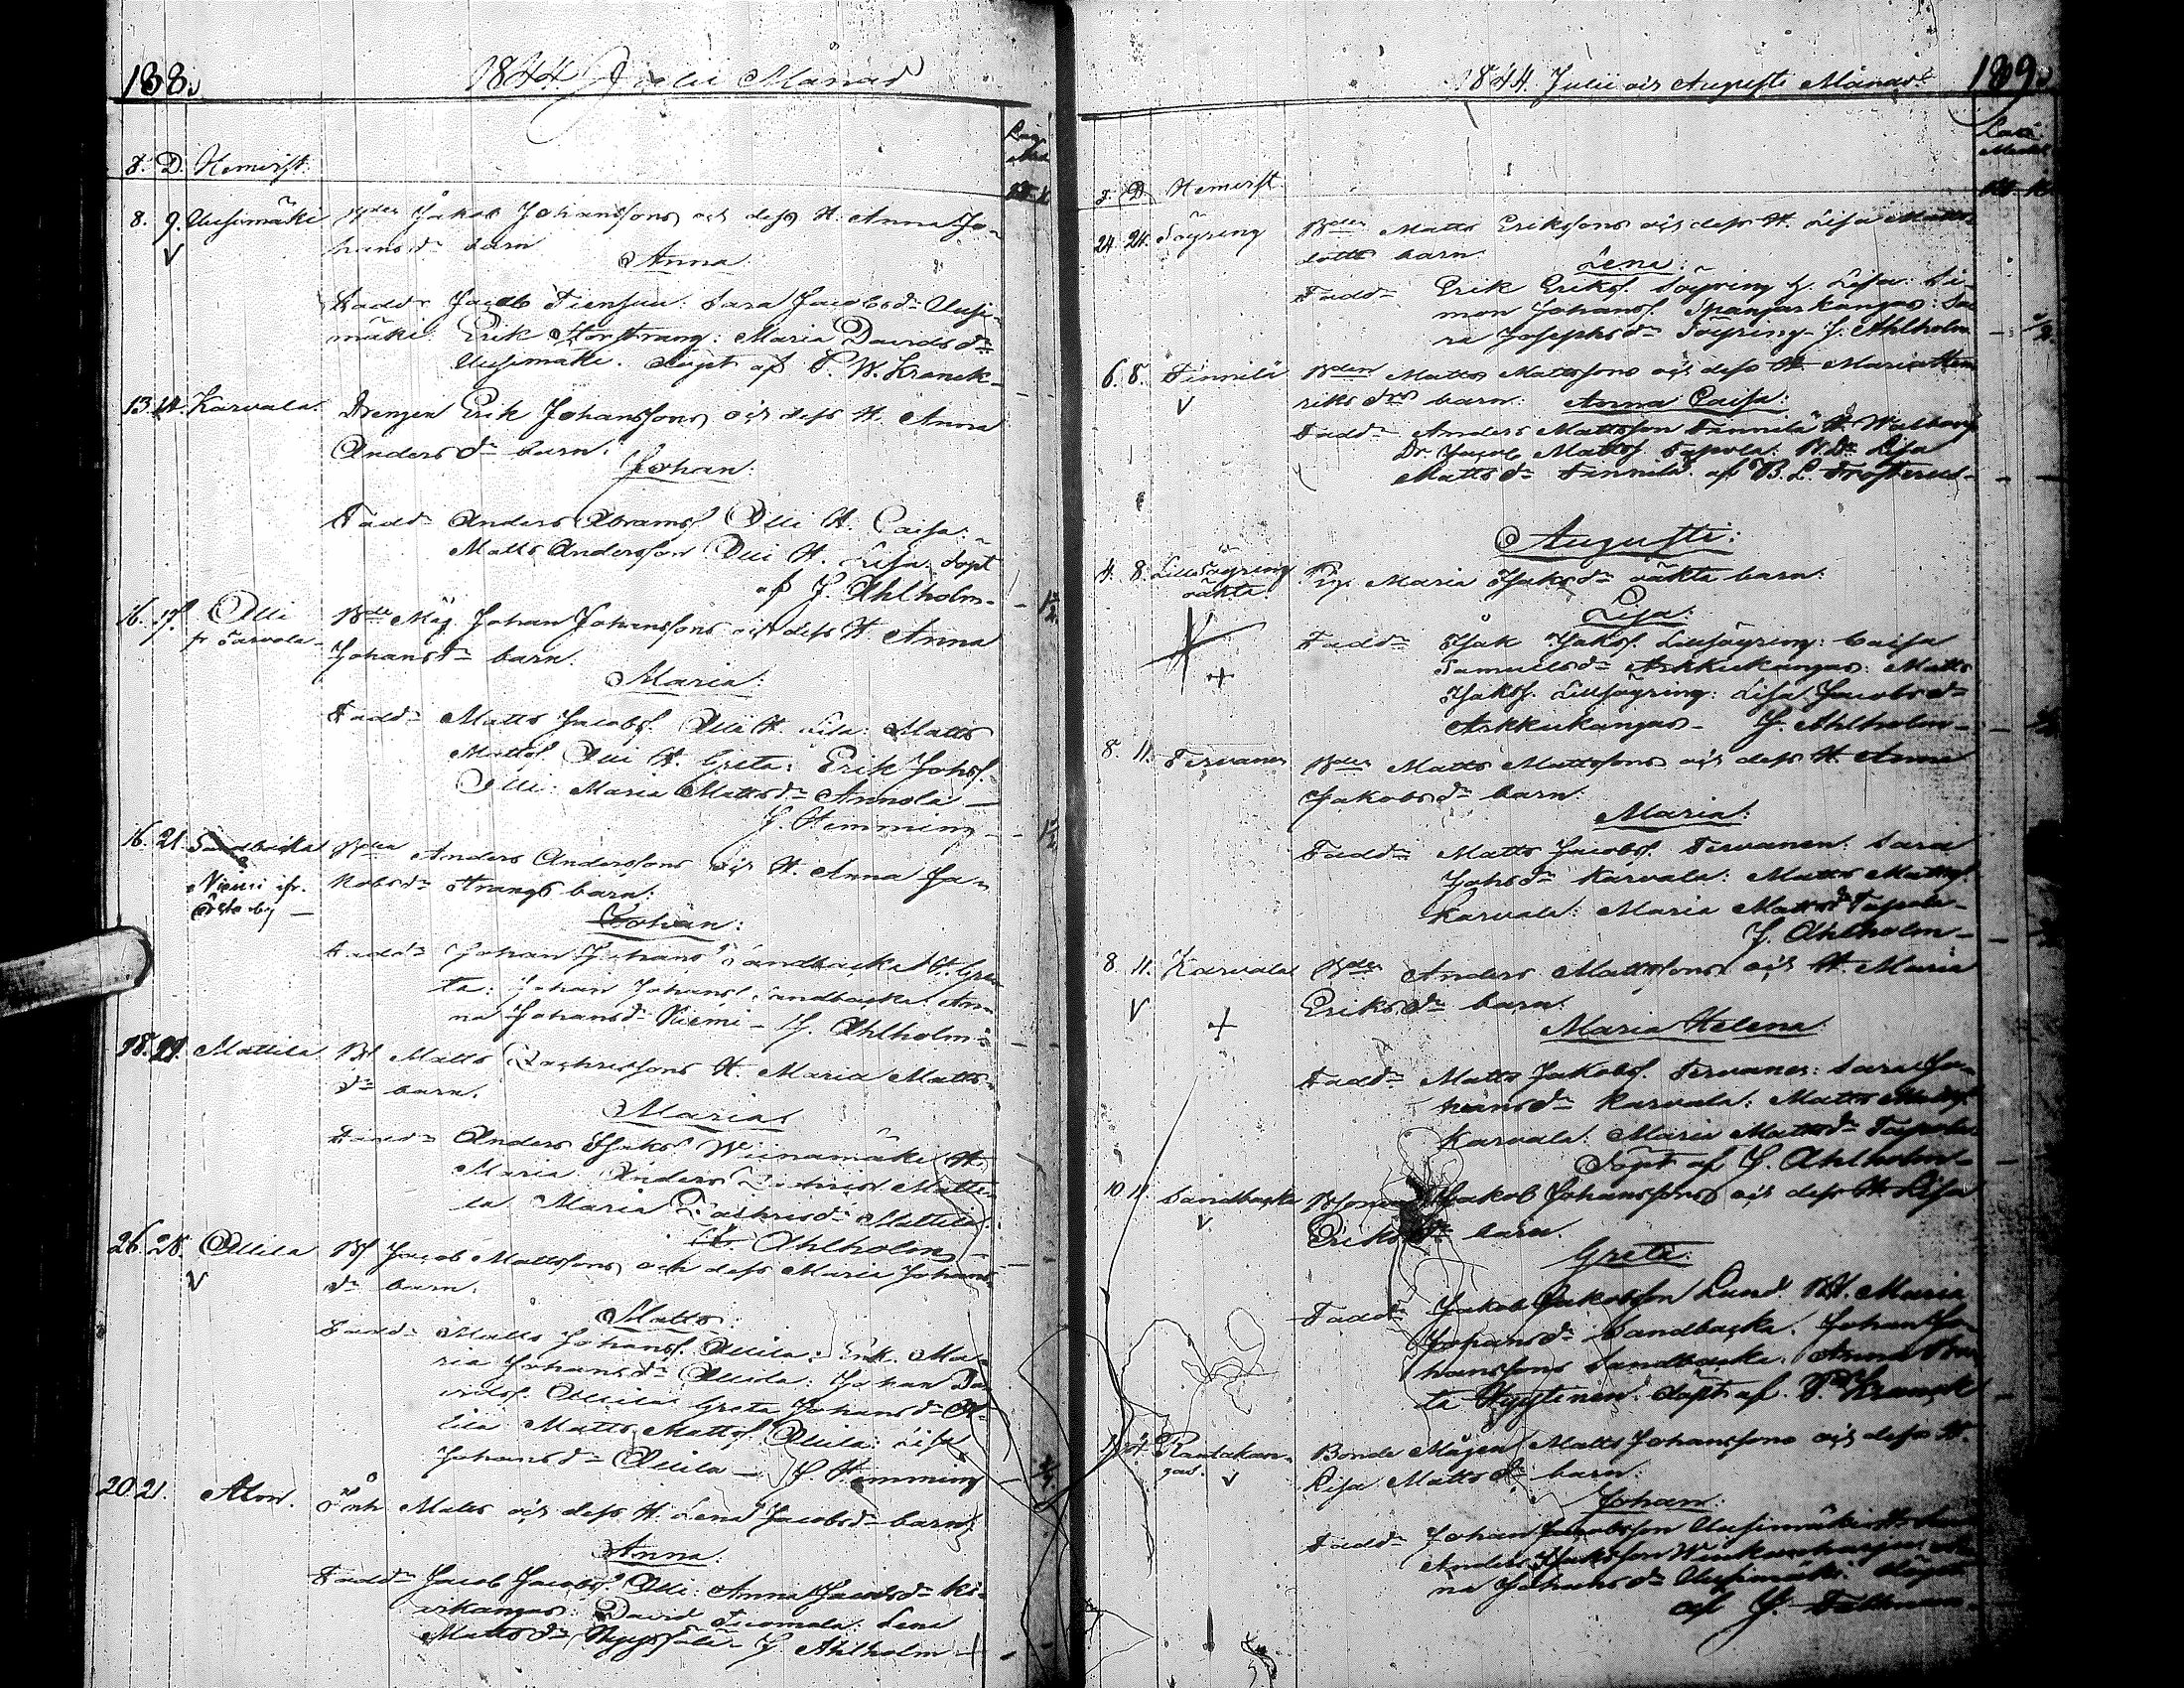 188.
1844 Julii Månad
F. D. Hemvist.
8. 9. Uusimäki Bden Jakob Johanssons och dess H. Anna Jo-
hans dr barn
Anna
Fadd: Jacob Tiensuu: Sara Jacobs dr Uusi-
mäki: Erik Storstrang: Maria Davids dr
Uusimäki. Döpt af P. W. Kranck
13. 14. Karvala. Drengen Erik Johanssons och dess H. Anna
Anders dr barn.
Johan:
Fadd: Anders Abramss. Olli H. Caisa:
Matts Andersson Olli H. Lisa. Döpt
af J. Ahlholm
16. 17. Olli Bde Måg. Johan Johanssons och dess H. Anna
Johans dr barn.
Maria:
Fadd: Matts Jacobs. Olli H. Lisa: Matts
Matts. Olli H. Greta: Erik Johs.
Olli: Maria Matts dr Annola
J. Hemming
16. 21. Sandbacka Bden Anders Anderssons och H. Anna Ja-
Niemi ifr.
Österby
kobs dr Strangs barn:
Johan:
Fadd: Johan Johans. Sandbacka H. Gre-
ta: Johan Johans. Sandbacka: An-
na Johans dr Niemi - J. Ahlholm
18. 21. Mattila Bd Matts Zachrissons H. Maria Matts
dr barn.
Maria
Fadd: Anders Isaks. Wiinamäki H.
Maria Anders Zachriss. Matti-
la Maria Zachris dr Mattila
J. Ahlholm
26. 28. Ollila Bd Jacob Mattssons och dess Maria Johans
dr barn.
Matts:
Fadd: Matts Johans. Ollila: Enk. Ma-
ria Johans dr Ollila: Johan Da-
vids. Ollila: Greta Johans dr Ol-
lila Matts Matts. Ollila: Lisa
Johans dr Ollila - J. Hemming
20. 21. Matts och dess H. Lena Jacobs dr barn:
Anna:
Fadd: Jacob Jacobs. Olli: Anna Jacobs dr Ki-
vikangas: David Tuomala: Lena
Matts dr - J. Ahlholm
1844. Julii och Augusti Månad
189.
F. D. Hemvist
24. 24. Söyring Bden Matts Erikssons och dess H. Lisa Matts
dotts barn
Lena:
Fadd: Erik Eriks. Söyring H. Lisa: Si-
mon Johans. Spångarkangas: Sa-
ra Josephs dr Söyring - J. Ahlholm
6. 8. Finnilä Bden Matts Mattssons och dess H. Maria Hen
riks drs barn: Anna Caisa:
Fadd: Anders Mattsson Finnilä H. Walborg
Dr. Jacob Matts. Sapola: Lisa
Matts dr Finnilä. af B. L. Frosterus
Augusti:
4. 8. Lillsöyring
oäkta Pig. Maria Isaks dr oäkta barn:
Lisa:
Fadd: Isak Isaks. Lillsöyring: Caisa
Samuels dr Arkkukangas: Matts
Isaks. Lillsöyring: Lisa Jacobs dr
Arkkukangas - J. Ahlholm
8. 11. Tervanen Bden Matts Mattssons och dess H. Anna
Jakobs dr barn:
Maria:
Fadd: Matts Jacobs. Tervanen: Sara
Johs dr Karvala: Matts Matts.
Karvala: Maria Matts dr Tapola
J. Ahlholm
8. 11. Karvala Bden Anders Mattssons och H. Maria
Eriks dr barn:
Maria Helena
Fadd: Matts Jakobs. Tervanen: Sara Jo-
hans dr Karvala: Matts Matts.
Karvala: Maria Matts dr Tapola
Döpt af J. Ahlholm
10. 11. Sandbacka Jakob Johanssons och dess H. Lisa
Eriks dr barn.
Greta:
Fadd: Jakob Jakobsson Lund BH. Maria
Johans dr Sandbacka. Johan Jo-
hanssons Sandbacka. Anna
Hyytinen. döpt af P. W. Kranck
Rantakan-
gas. Bonde Mågen Matts Johanssons och dess H.
Lisa Matts dr barn:
Johan:
Fadd: Johan Jakobsson Uusimäki H.
Anders Isaksson
na Johans dr Uusimäki. döpt
af J. Fellman